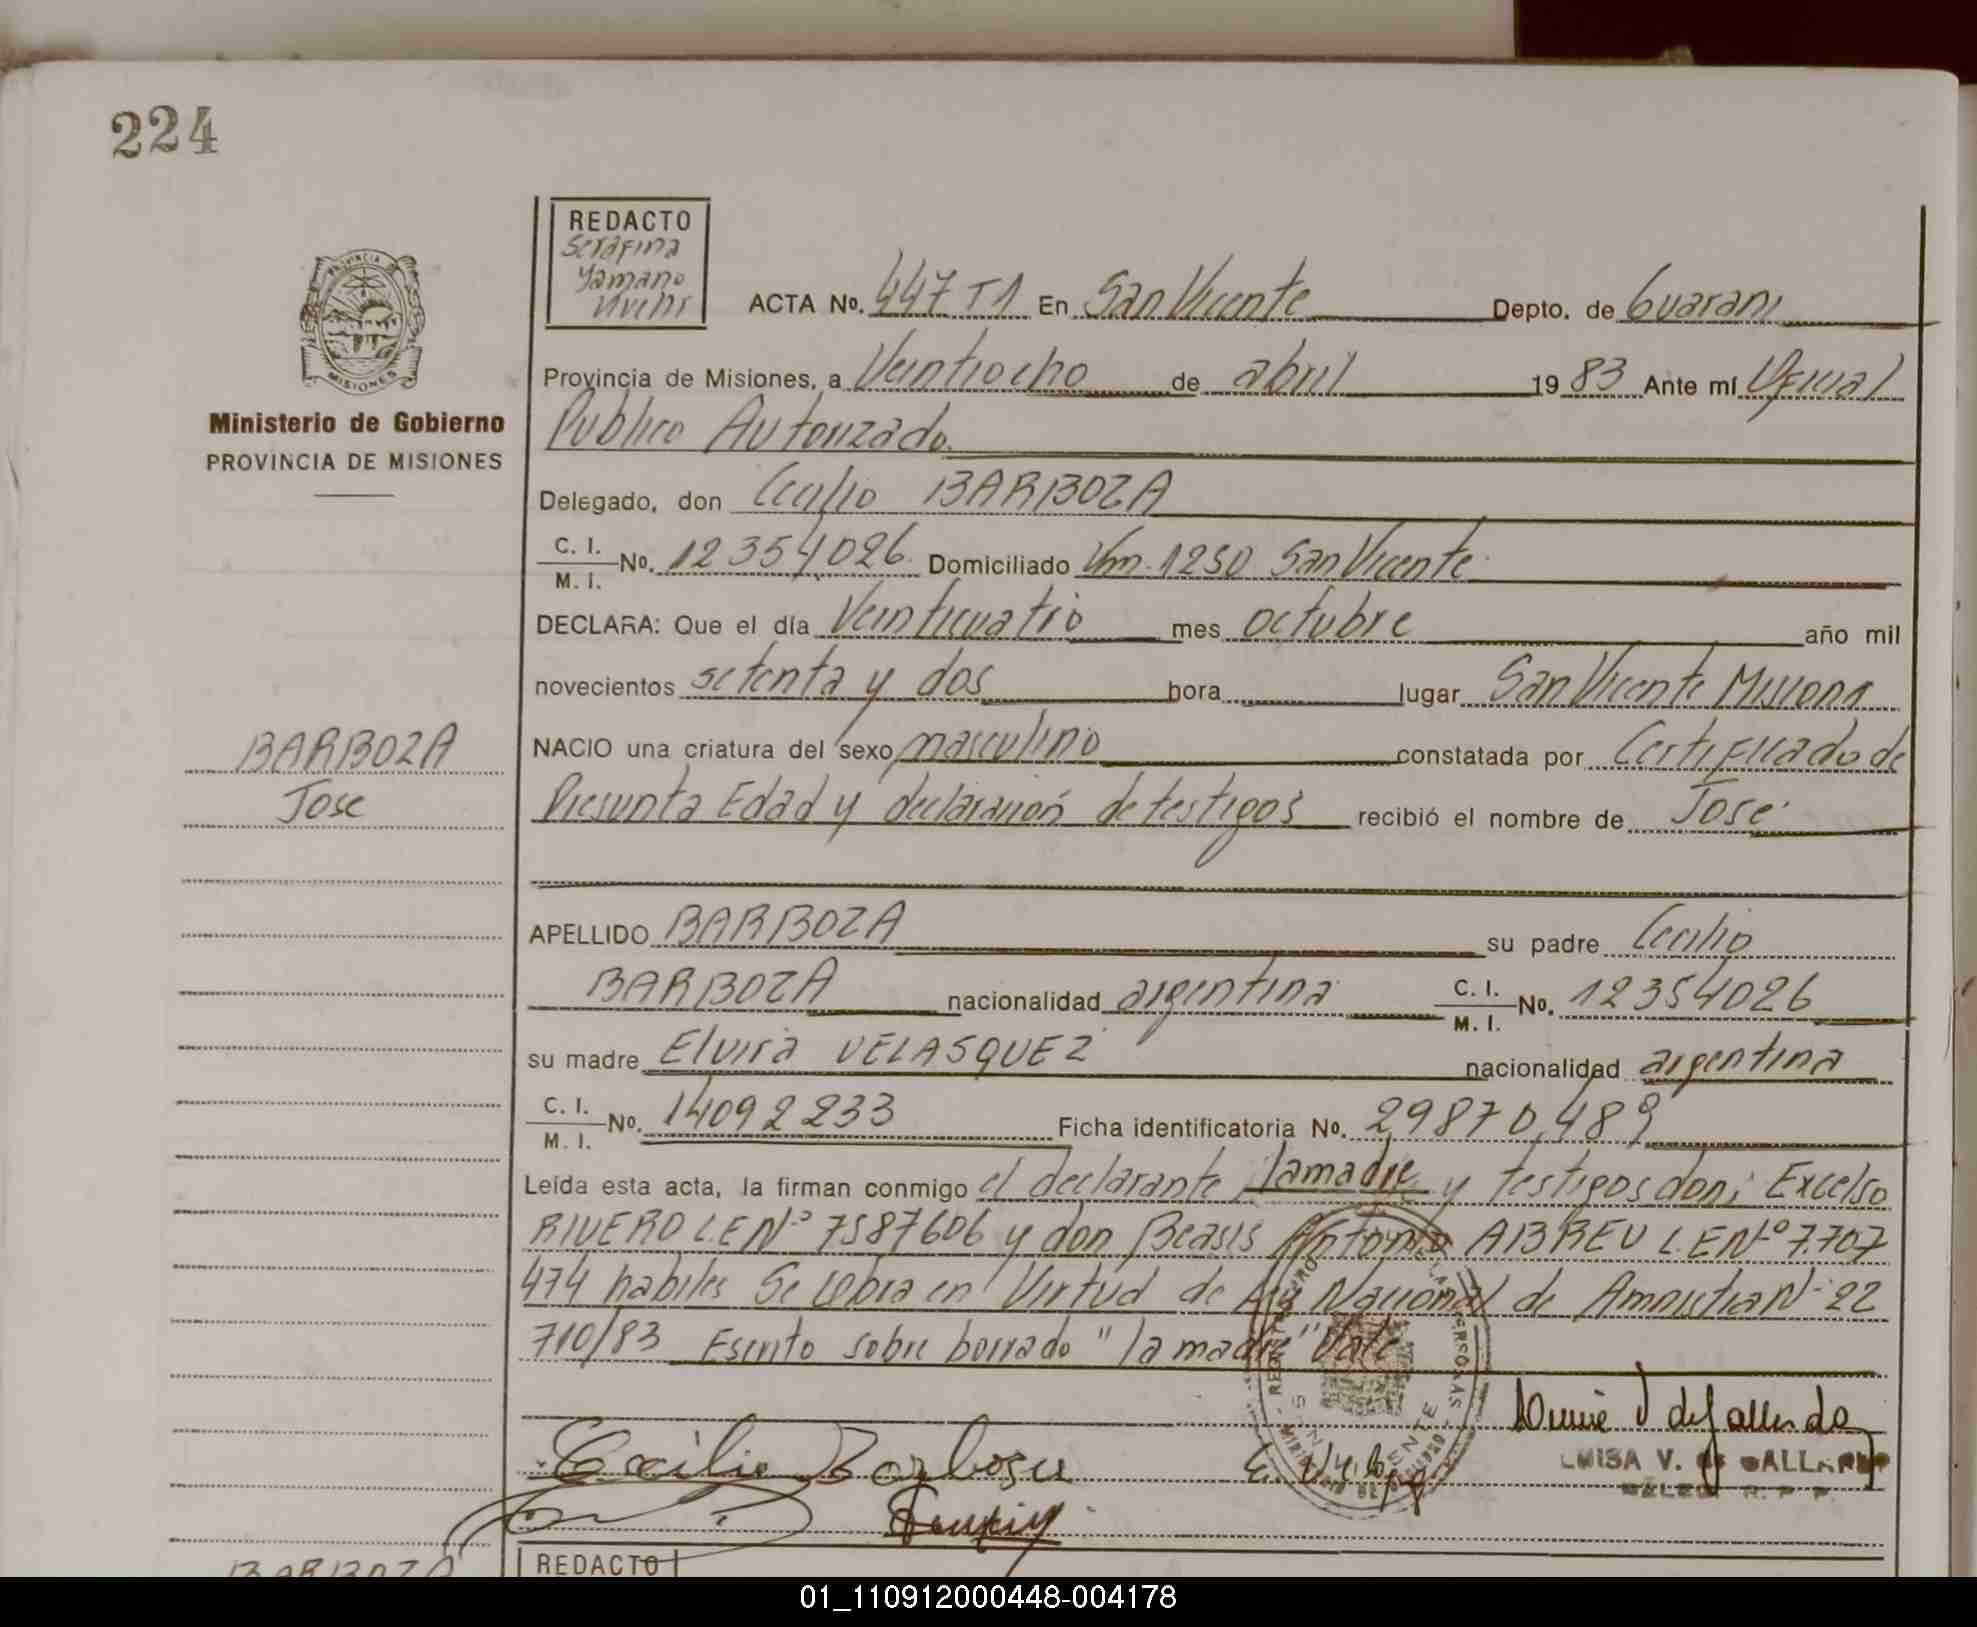 224
REDACTO
Serafina
Yamano
PROVINCIA DE
MISIONES
ACTA No. 447 T1 En San Vicente Depto. de Guarani
Provincia de Misiones, a Veintiocho de abril 1983 Ante mí Oficial
Ministerio de Gobierno
PROVINCIA DE MISIONES
Publico Autorizado
Delegado, don Cecilio BARBOZA
C. I.
M. I. No. 12354026 Domiciliado Km. 1250 San Vicente
DECLARA: Que el día Veinticuatro mes octubre año mil
novecientos setenta y dos hora lugar San Vicente Misiones
BARBOZA
Jose
NACIO una criatura del sexo masculino constatada por Certificado de
Presunta Edad y declaración de testigos recibió el nombre de José
APELLIDO BARBOZA su padre Cecilio
BARBOZA nacionalidad argentina C. I.
M. I. No. 12354026
su madre Elvira VELASQUEZ nacionalidad argentina
C. I.
M. I. No. 14092233 Ficha identificatoria No. 29870,489
Leída esta acta, la firman conmigo el declarante la madre y testigos don; Excelso
RIVERO L.E Nº 7587606 y don Beasis Antonio ABREU L.E Nº 7.707
474 habiles Se labra en Virtud de Ley Nacional de Amnistia Nº 22
710/83 Escrito sobre borrado "la madre" Vale
Cecilio Barboza
LUISA V. de GALLARDO
REDACTO
BARBOZA
01_110912000448-004178